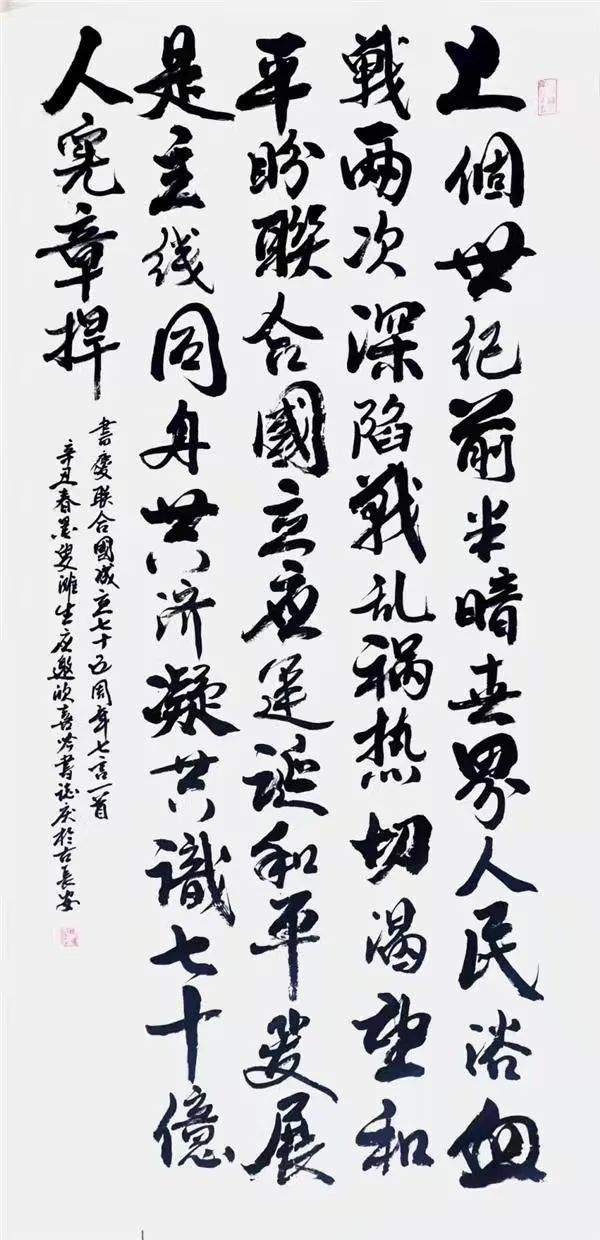 上個世纪前半暗世界人民浴血
戰两次深陷戰乱祸热切渴望和
平盼聯合國立应運诞和平发展
是主线同舟共济凝共識七十億
人宪章捍
書慶联合國成立七十五周年七言一首
辛丑春墨叟滩生应邀欣喜吟書誌庆於古長安